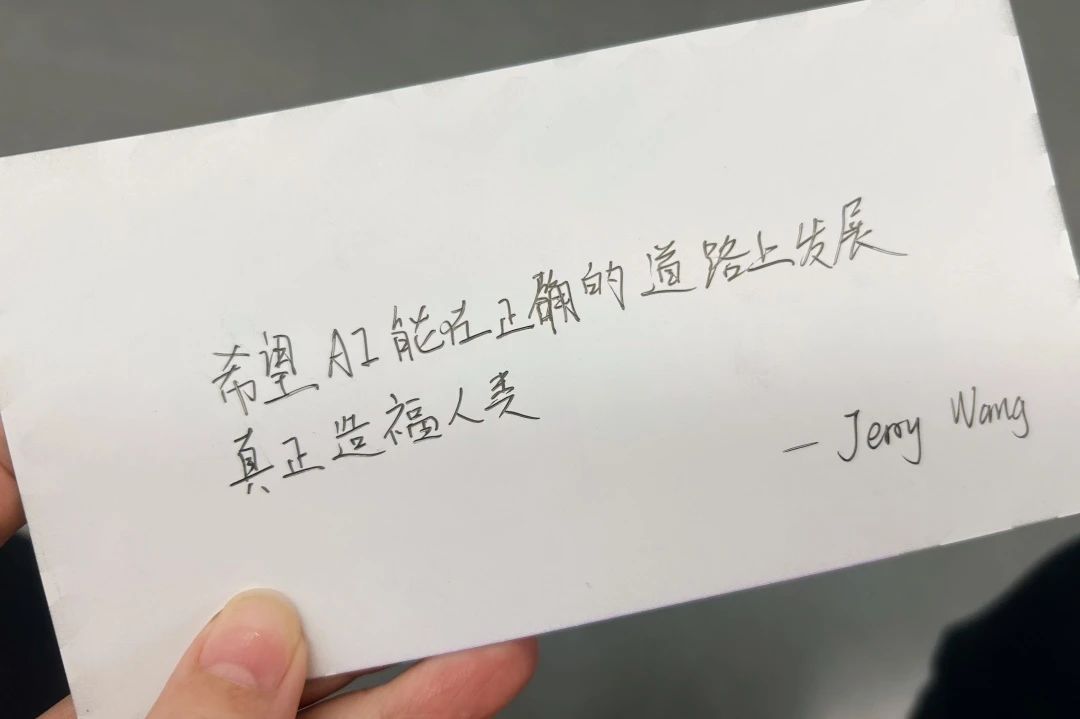 希望AI能在正确的道路上发展
真正造福人类
— Jerry Wang